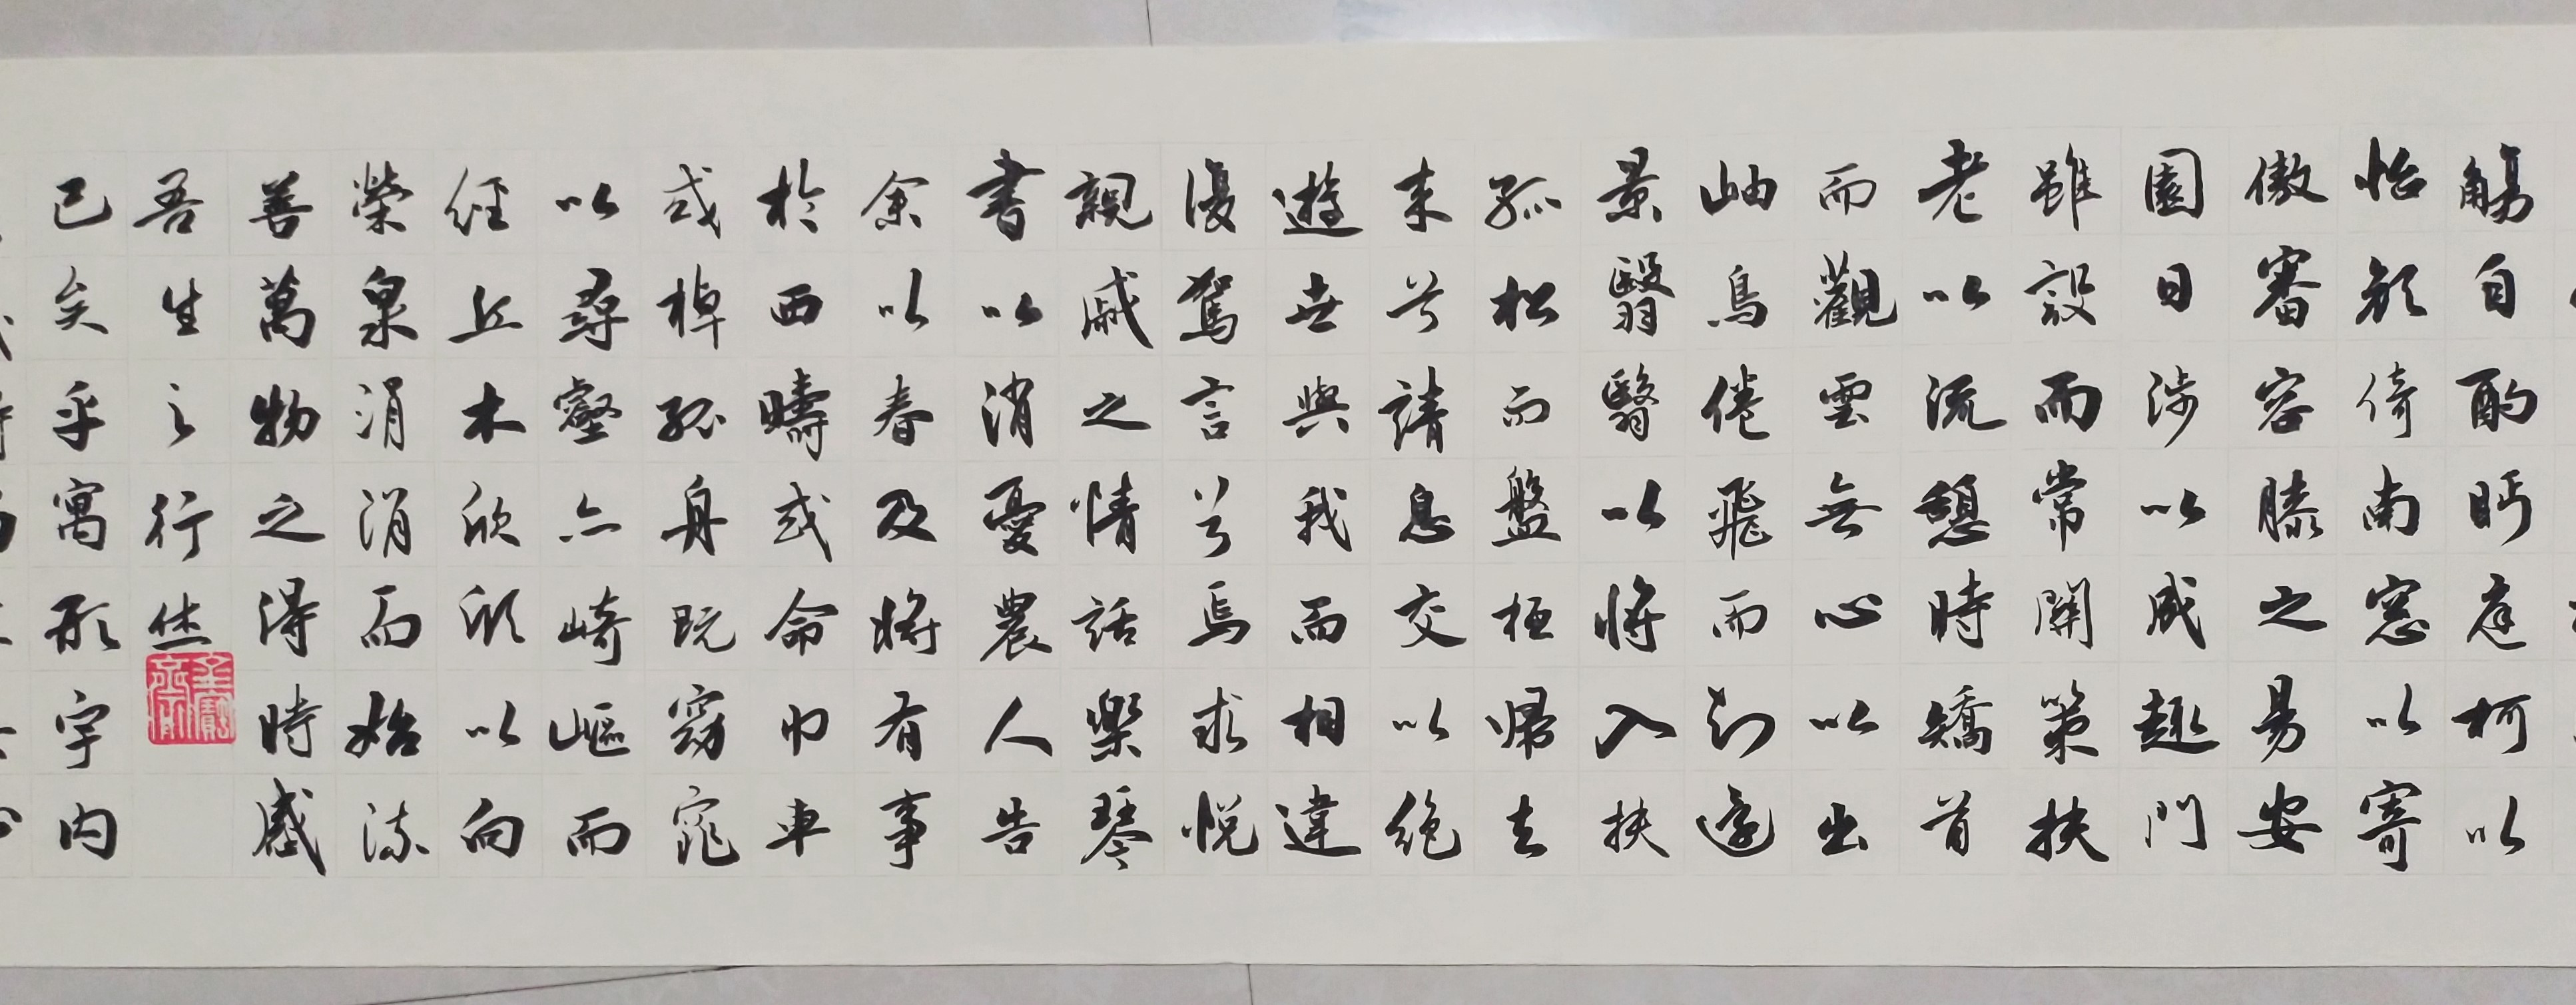 觴自酌眄庭柯以
怡顏倚南窓以寄
傲審容膝之易安
園日涉以成趣門
雖設而常關策扶
老以流憩時矯首
而觀雲無心以出
岫鳥倦飛而知還
景翳翳以將入扶
孤松而盤桓歸去
来兮請息交以絶
遊世與我而相違
復駕言兮焉求悅
親戚之情話樂琴
書以消憂農人告
余以春及將有事
於西疇或命巾車
或棹孤舟既窈窕
以尋壑亦崎嶇而
經丘木欣欣以向
榮泉涓涓而始流
善萬物之得時感
吾生之行休
已矣乎寓形宇内